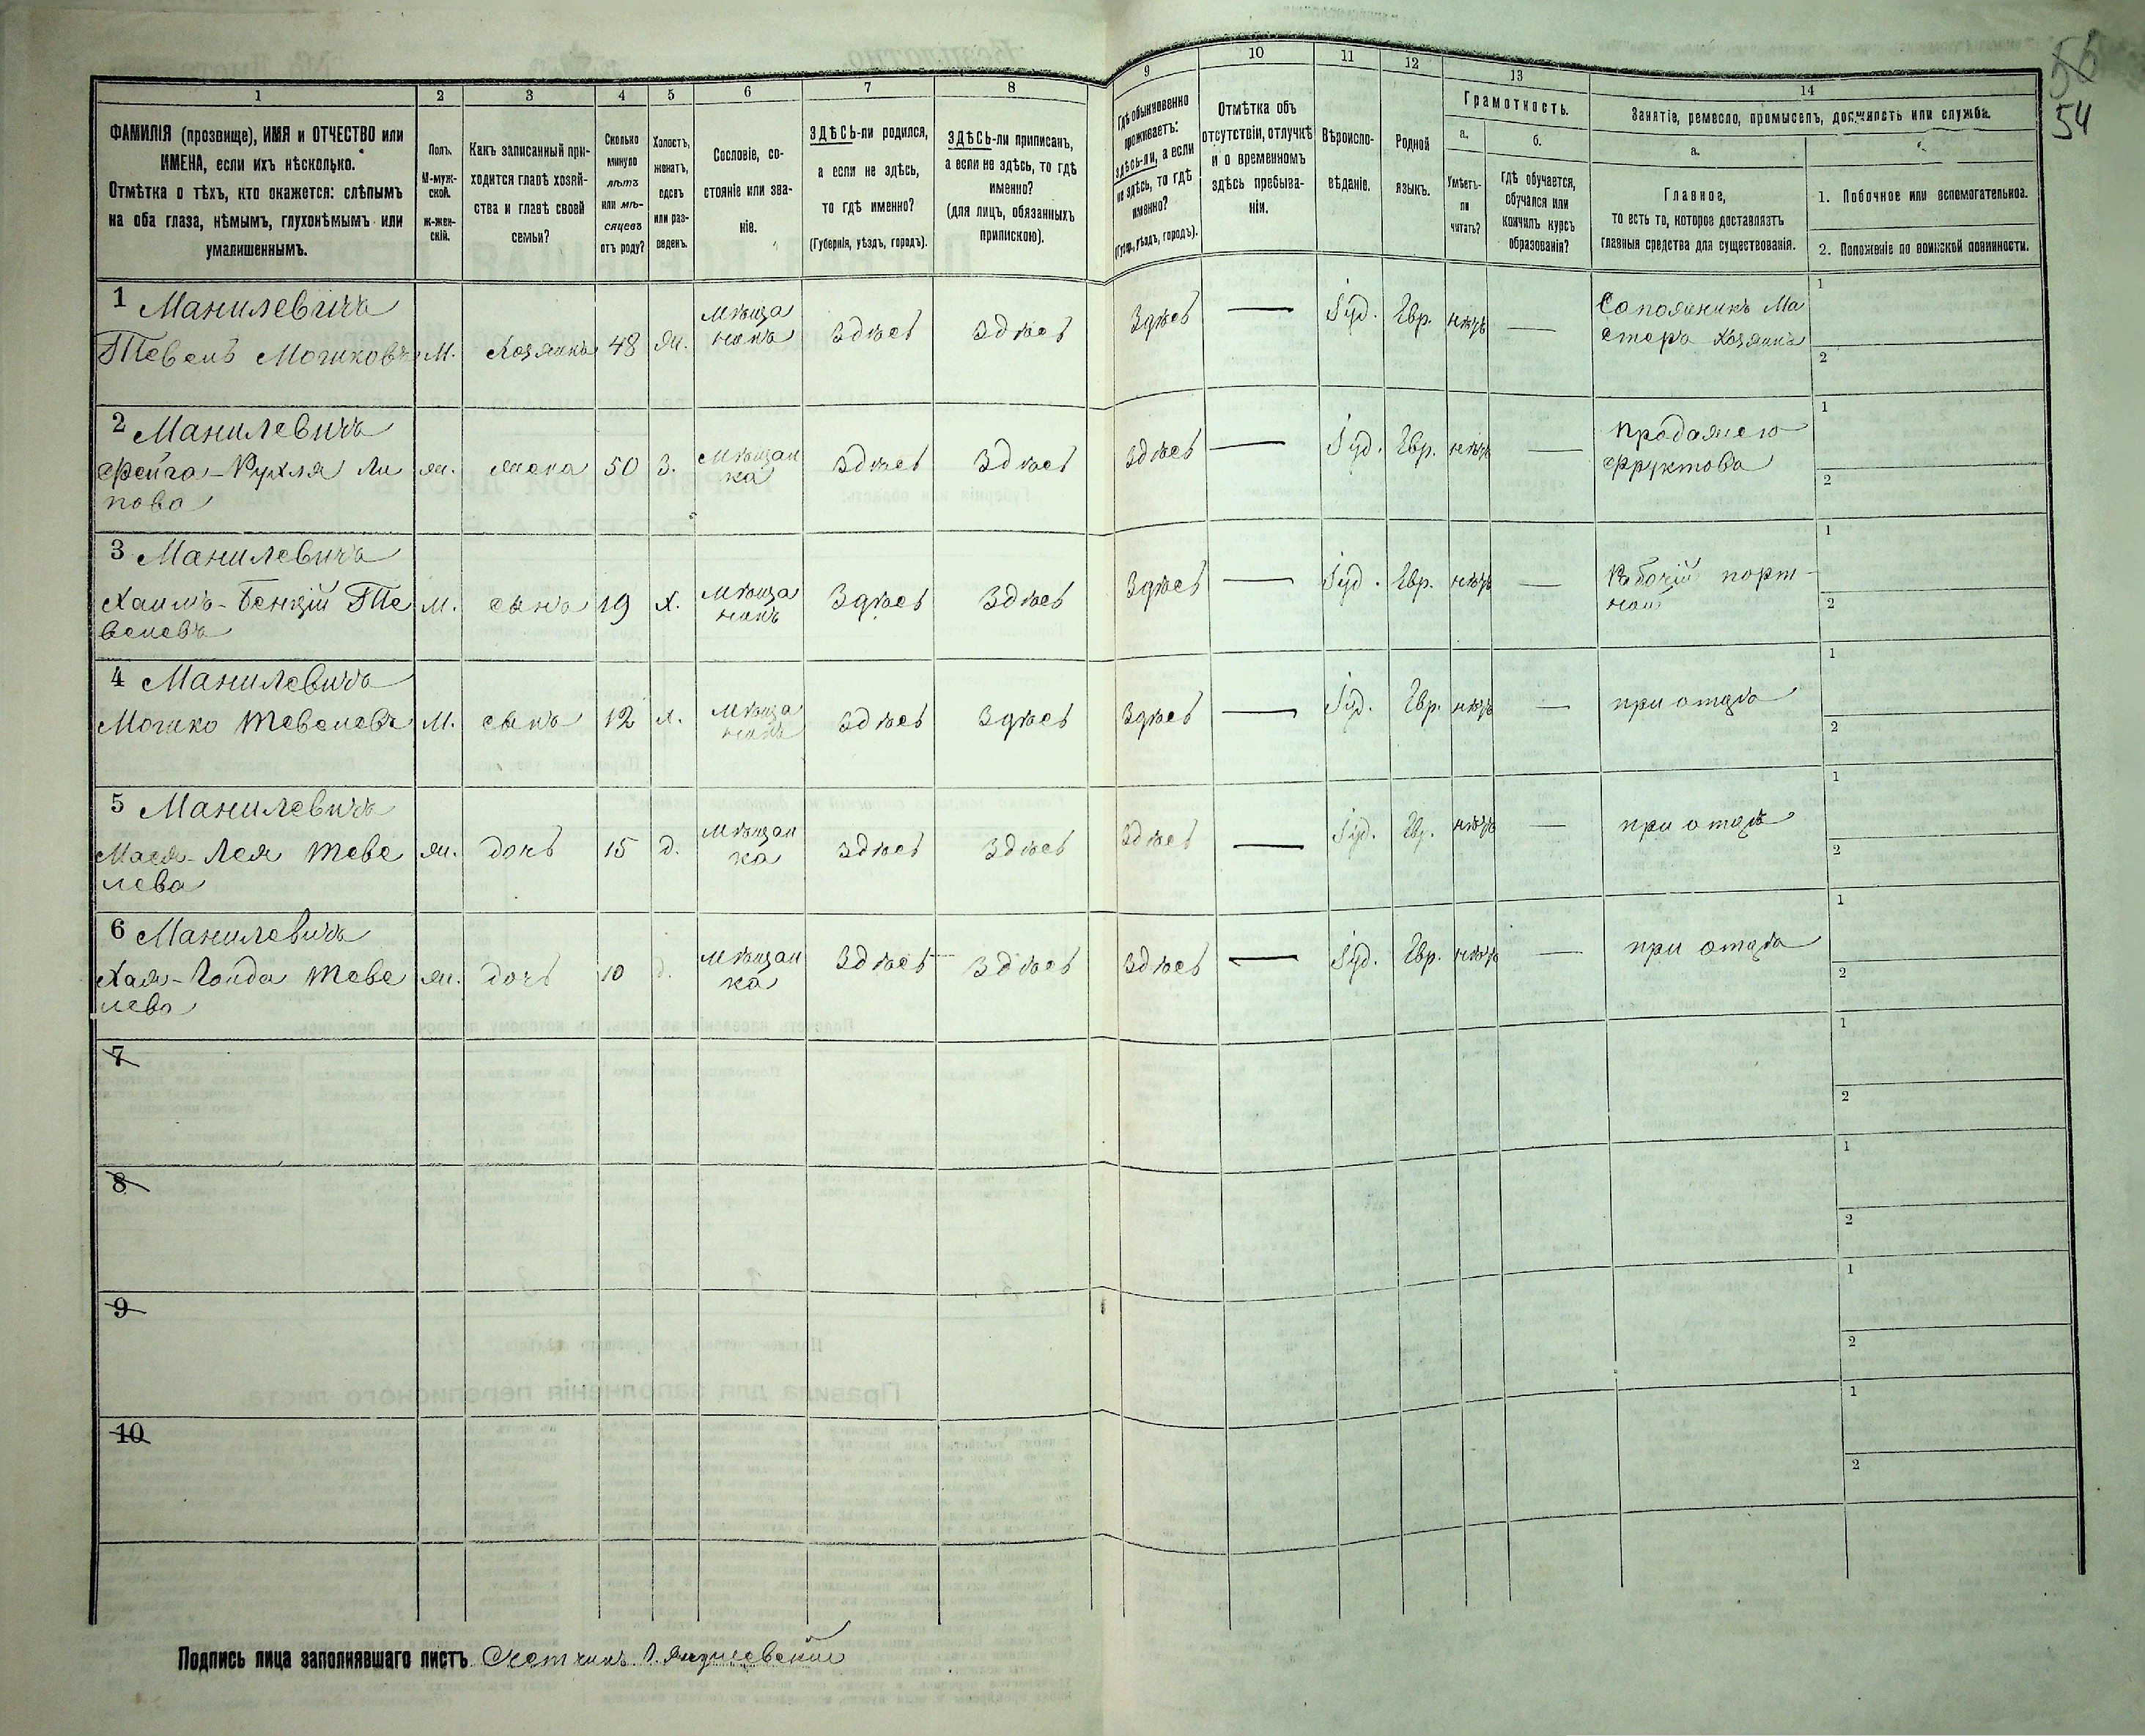 56
54
1 2 3 4 5 6 7 8 9 10 11 12 13 14
ФАМИЛІЯ (прозвище), ИМЯ и ОТЧЕСТВО или
ИМЕНА, если ихъ нѣсколько.
Отмѣтка о тѣхъ, кто окажется: слѣпымъ
на оба глаза, нѣмымъ, глухонѣмымъ или
умалишеннымъ.
Полъ.
М-муж-
ской.
ж-жен-
скій.
Какъ записанный при-
ходится главѣ хозяй-
ства и главѣ своей
семьи?
Сколько
минуло
лѣтъ
или мѣ-
сяцевъ
отъ роду?
Холостъ,
женатъ,
вдовъ
или раз-
веденъ.
Сословіе, со-
стояніе или зва-
ніе.
ЗДѢСЬ-ли родился,
а если не здѣсь,
то гдѣ именно?
(Губернія, уѣздъ, городъ).
ЗДѢСЬ-ли приписанъ,
а если не здѣсь, то гдѣ
именно?
(для лицъ, обязанныхъ
припискою).
Гдѣ обыкновенно
проживаетъ:
здѣсь-ли, а если
не здѣсь, то гдѣ
именно?
(Губер., уѣздъ, городъ).
Отмѣтка объ
отсутствіи, отлучкѣ
и о временномъ
здѣсь пребыва-
ніи.
Вѣроиспо-
вѣданіе.
Родной
языкъ.
Грамотность.
а. б.
Умѣетъ-
ли
читать?
гдѣ обучается,
обучался или
кончилъ курсъ
образованія?
Занятіе, ремесло, промыселъ, должность или служба.
а.
Главное,
то есть то, которое доставляетъ
главныя средства для существованія.
1. Побочное или вспомогательное.
2. Положеніе по воинской повинности.
1 Манилевичъ
Тевель Мошковъ М. Хозяинъ 48 ж. Мѣща
нинъ Здѣсь Здѣсь Здѣсь — Іуд. Евр. нѣтъ — Сапожникъ Ма
стеръ Хозяинъ 1
2
2 Манилевичъ
Фейга-Рухля Ли
пова ж. жена 50 З. Мѣщан
ка Здѣсь Здѣсь Здѣсь — Іуд. Евр. нѣтъ — продажею
фруктовъ 1
2
3 Манилевичъ
Хаимъ-Бенцій Те
велевъ М. сынъ 19 х. Мѣща
нинъ Здѣсь Здѣсь Здѣсь — Іуд. Евр. нѣтъ — Рабочій порт
ной 1
2
4 Манилевичъ
Мошко Тевелевъ М. сынъ 12 х. Мѣща
нинъ Здѣсь Здѣсь Здѣсь — Іуд. Евр. нѣтъ — при отцѣ 1
2
5 Манилевичъ
Мася-Лея Теве
лева ж. дочь 15 д. Мѣщан
ка Здѣсь Здѣсь Здѣсь — Іуд. Евр. нѣтъ — при отцѣ 1
2
6 Манилевичъ
Хая-Гольда Теве
лева ж. дочь 10 д. Мѣщан
ка Здѣсь Здѣсь Здѣсь — Іуд. Евр. нѣтъ — при отцѣ 1
2
7 1
2
8 1
2
9 1
2
10 1
2
Подпись лица заполнявшаго листъ Счетчикъ